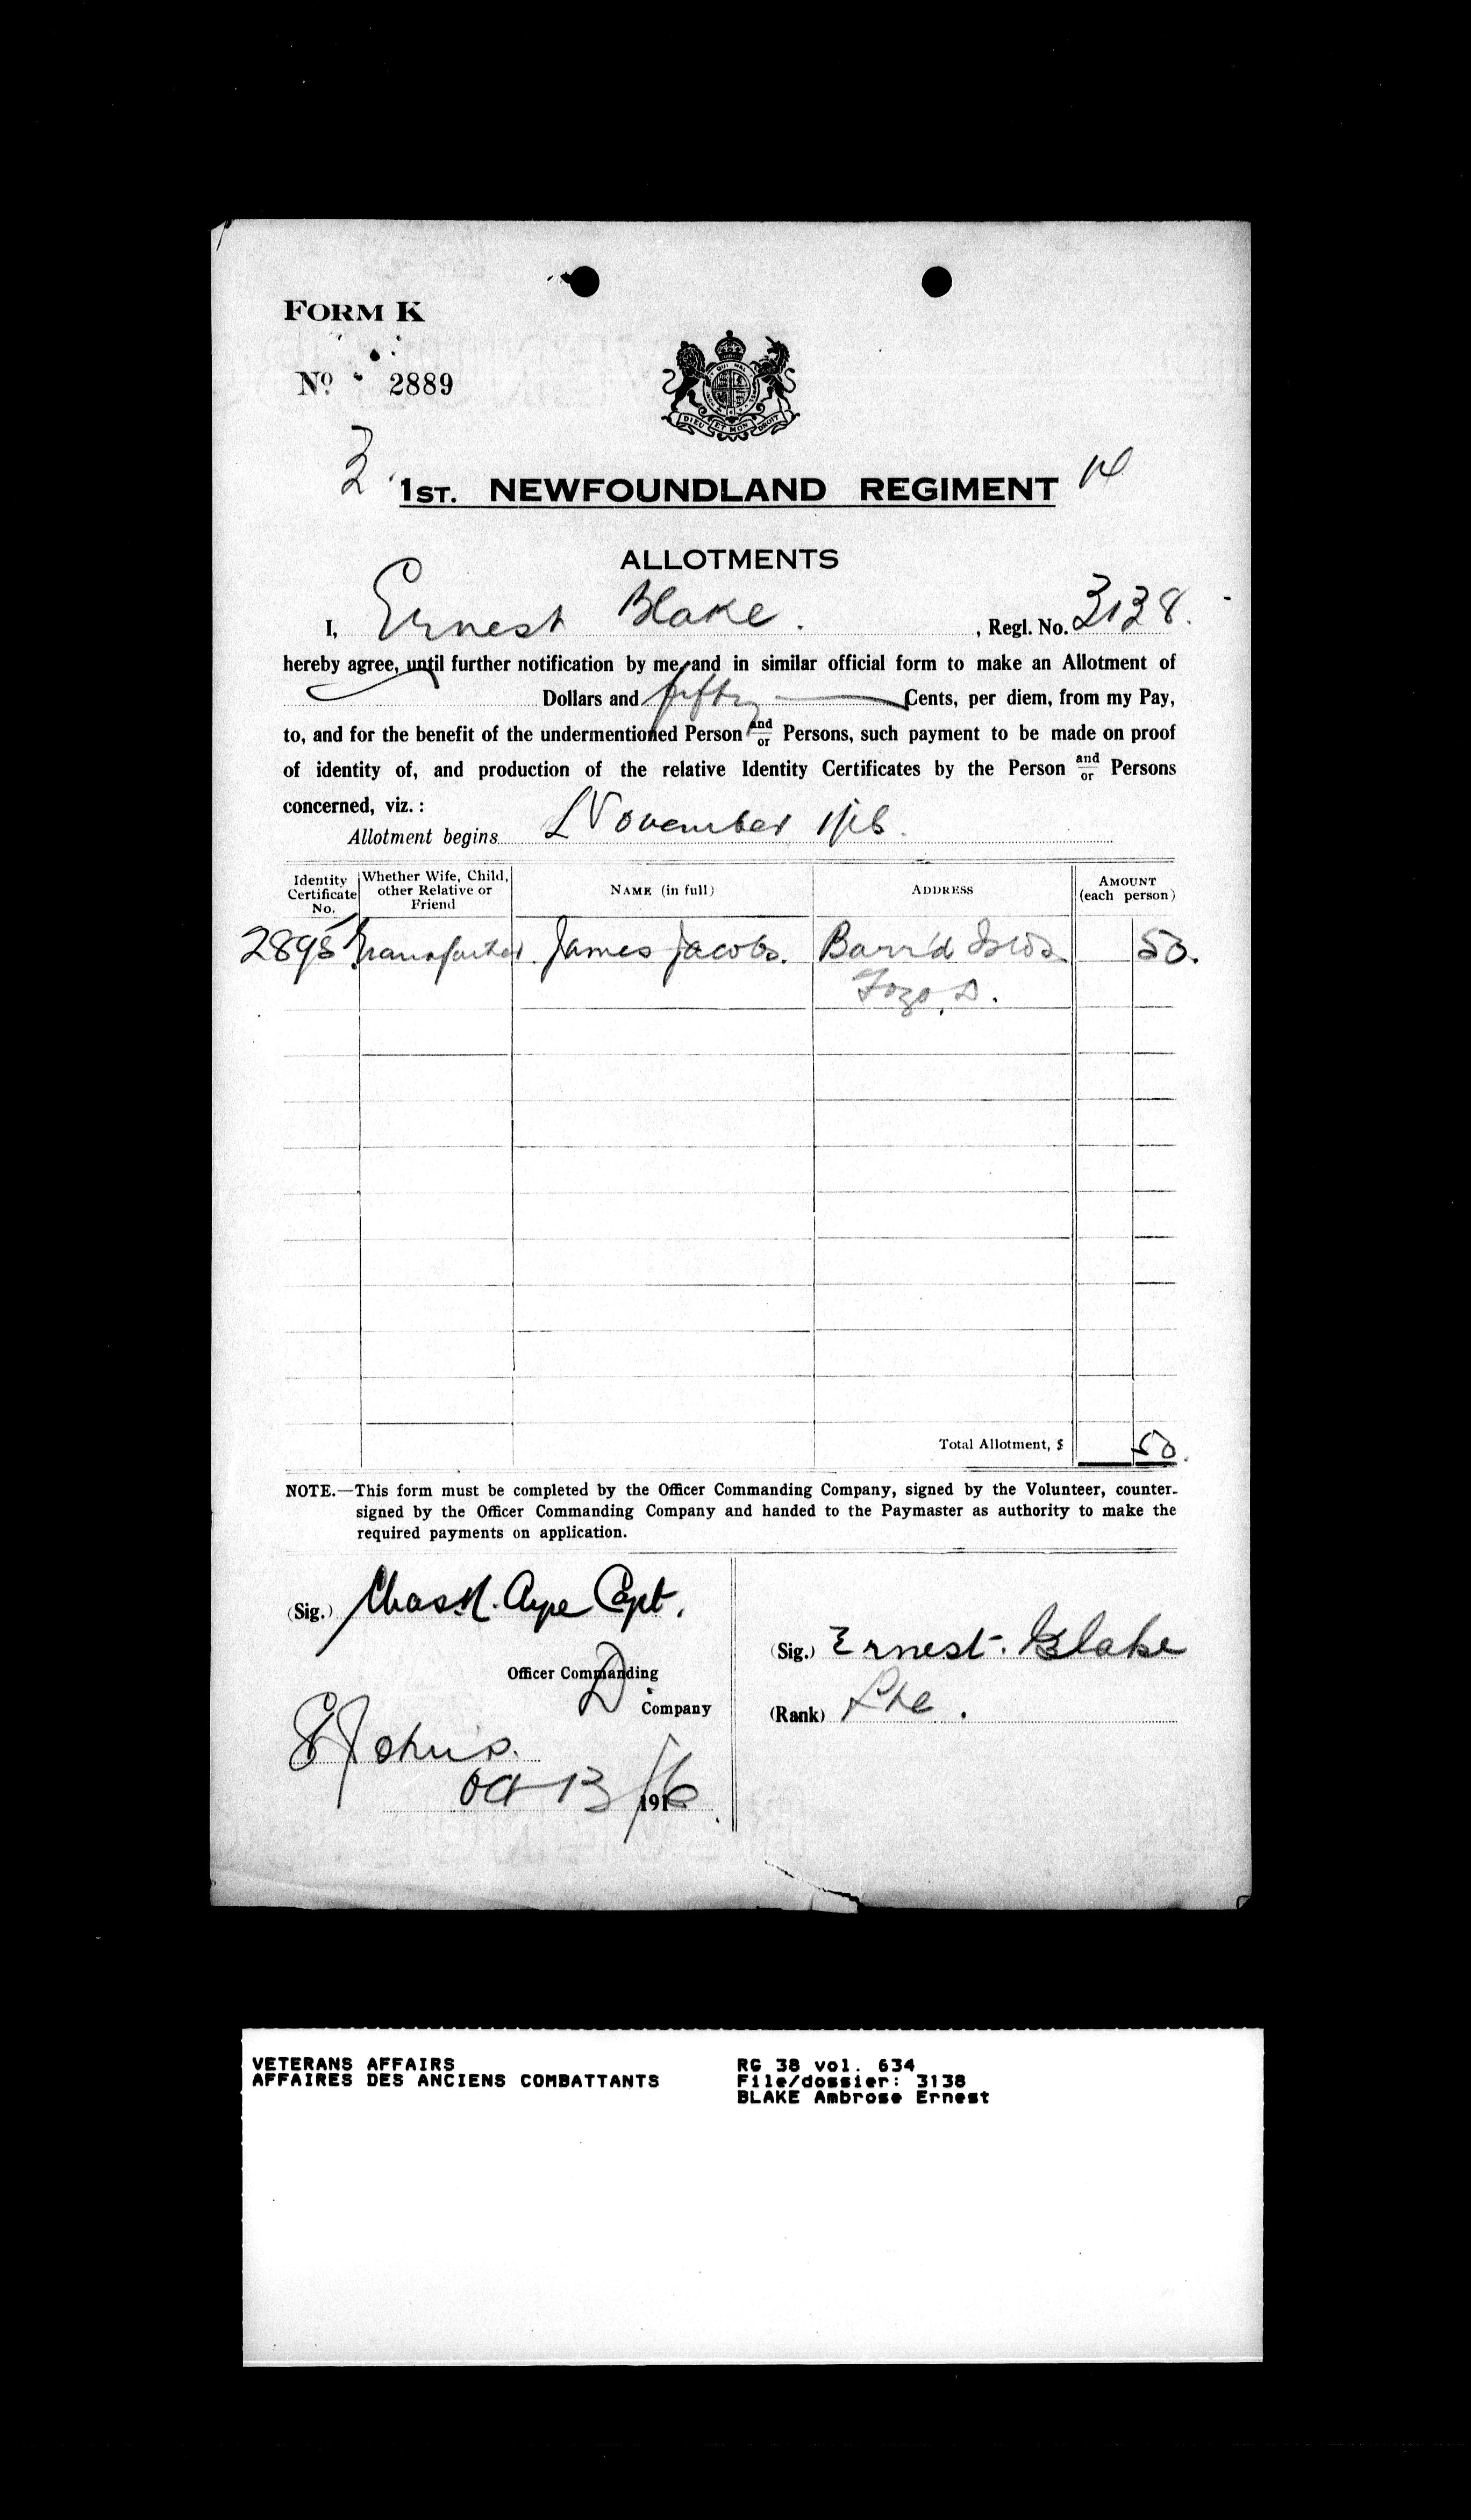 FORM K
No 2889
QUI MAL Y
DIEU ET MON DROIT
3 1ST. NEWFOUNDLAND REGIMENT
ALLOTMENTS
I, Ernest Blake. , Regl. No. 3138.
hereby agree, until further notification by me, and in similar official form to make an Allotment of
Dollars and fifty Cents, per diem, from my Pay,
to, and for the benefit of the undermentioned Person and/or Persons, such payment to be made on proof
of identity of, and production of the relative Identity Certificates by the Person and/or Persons
concerned, viz. :
Allotment begins November 1/16.
Identity Certificate No. Whether Wife, Child, other Relative or Friend NAME (in full) ADDRESS AMOUNT (each person)
2895 Granfather. James Jacobs. Barr'd Islds 50.
Fogo, D.
Total Allotment, $ 50.
NOTE.—This form must be completed by the Officer Commanding Company, signed by the Volunteer, counter-
signed by the Officer Commanding Company and handed to the Paymaster as authority to make the
required payments on application.
(Sig.) Chas. R. Ayre Capt.
Officer Commanding
D Company
St John's.
Oct 13/16 191
(Sig.) Ernest. Blake
(Rank) Pte.
VETERANS AFFAIRS
AFFAIRES DES ANCIENS COMBATTANTS
RG 38 vol. 634
File/dossier: 3138
BLAKE Ambrose Ernest